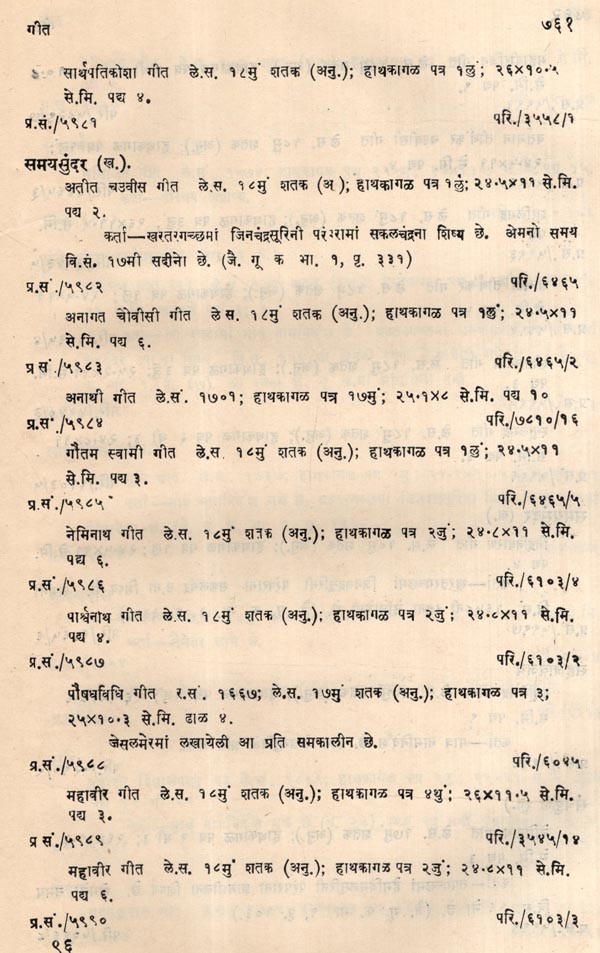 गीत ७६१
सार्थपतिकोशा गीत ले.स. १८मुं शतक (अनु.); हाथकागळ पत्र १लुं; २६×१०·५
से.मि. पद्य ४.
प्र.सं./५९८१ परि./३५५८/१
समयसुंदर (ख.).
अतीत चउवीस गीत ले.स. १८मुं शतक (अ ); हाथकागळ पत्र १लुं; २४·५×११ से.मि.
पद्य २.
कर्ता—खरतरगच्छमां जिनचंद्रसूरिनी परंपरामां सकलचंद्रना शिष्य छे. अेमनो समय
वि.सं. १७मी सदीनो छे. (जै. गू क भा. १, पृ. ३३१)
प्र.सं /५९८२ परि./६४६५
अनागत चोवीसी गीत ले.स. १८मुं शतक (अनु.); हाथकागळ पत्र १लुं; २४·५×११
से.मि. पद्य ६.
प्र सं /५९८३ परि./६४६५/२
अनाथी गीत ले.सं. १७०१; हाथकागळ पत्र १७मुं; २५·१×८ से.मि. पद्य १०
प्र.सं /५९८४ परि./७८१०/१६
गौतम स्वामी गीत ले.स. १८मुं शतक (अनु.); हाथकागळ पत्र १लुं; २४·५×११
से.मि. पद्य ३.
प्र.सं./५९८५ परि./६४६५/५
नेमिनाथ गीत ले.स. १८मुं शतक (अनु.); हाथकागळ पत्र २जुं; २४·८×११ से.मि.
पद्य ६.
प्र.सं./५९८६ परि./६१०३/४
पार्श्वनाथ गीत ले.स. १८मुं शतक (अनु.); हाथकागळ पत्र २जुं; २४·८×११ से.मि.
पद्य ४.
प्र.सं./५९८७ परि./६१०३/२
पौषधविधि गीत र.सं. १६६७; ले.स. १७मुं शतक (अनु.); हाथकागळ पत्र ३;
२५×१०·३ से.मि. ढाळ ४.
जेसलमेरमां लखायेली आ प्रति समकालीन छे.
प्र.सं./५९८८ परि./६०४५
महावीर गीत ले.स. १८मुं शतक (अनु.); हाथकागळ पत्र ४थुं; २६×११·५ से.मि.
पद्य ३.
प्र.सं./५९८९ परि./३५४५/१४
महावीर गीत ले.स. १८मुं शतक (अनु.); हाथकागळ पत्र २जुं; २४·८×११ से.मि.
पद्य ६.
प्र.सं./५९९० परि./६१०३/३
९६